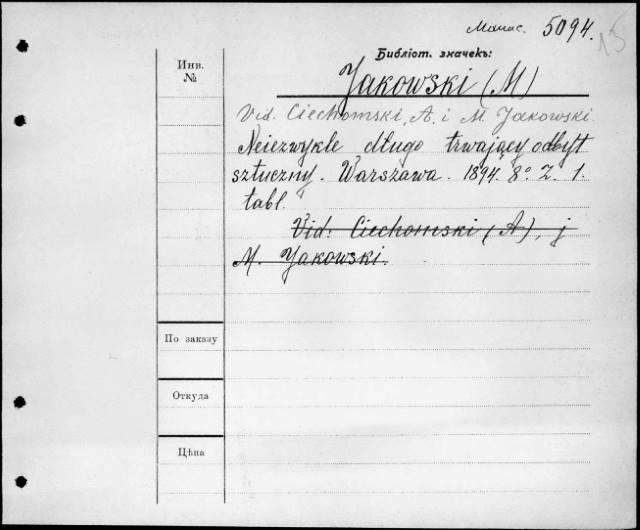 Манас. 5094.
15
Библіот. значекъ:
Инв.
№
Jakowski (M)
Vid. Ciechomski, A. i M. Jakowski
Neiezwykle długo trwający odbyt
sztuczny. Warszawa. 1894. 8º. Z. 1.
tabl.
Vid: Ciechomski (A), j
M. Jakowski.
По заказу
Откуда
Цѣна